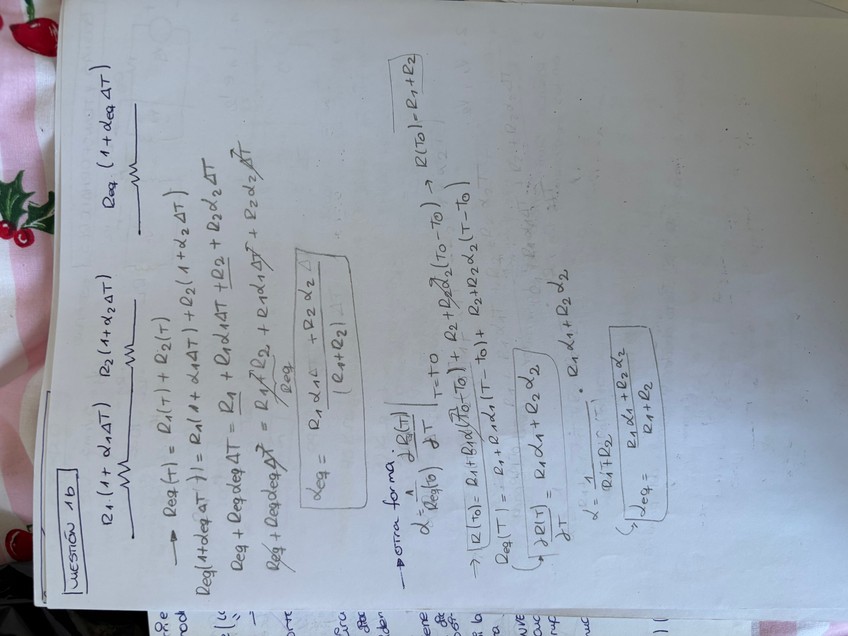 CUESTIÓN 1b
R1 (1 + α1ΔT) R2 (1+α2ΔT) Req (1+αeqΔT)
→ Req(T) = R1(T) + R2(T)
Req(1+αeqΔT) = R1(1+α1ΔT) + R2(1+α2ΔT)
Req + ReqαeqΔT = R1 + R1α1ΔT + R2 + R2α2ΔT
Req + ReqαeqΔT = R1+R2 + R1α1ΔT + R2α2ΔT
Req
αeq = R1α1 + R2α2 / (R1+R2)
→ otra forma.
α = 1/Req(T0) ∂R(T)/∂T | T=T0
→ R(T0) = R1 + R1α1(T0-T0) + R2 + R2α2(T0-T0) → R(T0) = R1+R2
Req(T) = R1 + R1α1(T-T0) + R2 + R2α2(T-T0)
↳ ∂R(T)/∂T = R1α1 + R2α2
α = 1/R1+R2 · R1α1 + R2α2
↳ αeq = R1α1 + R2α2 / R1+R2